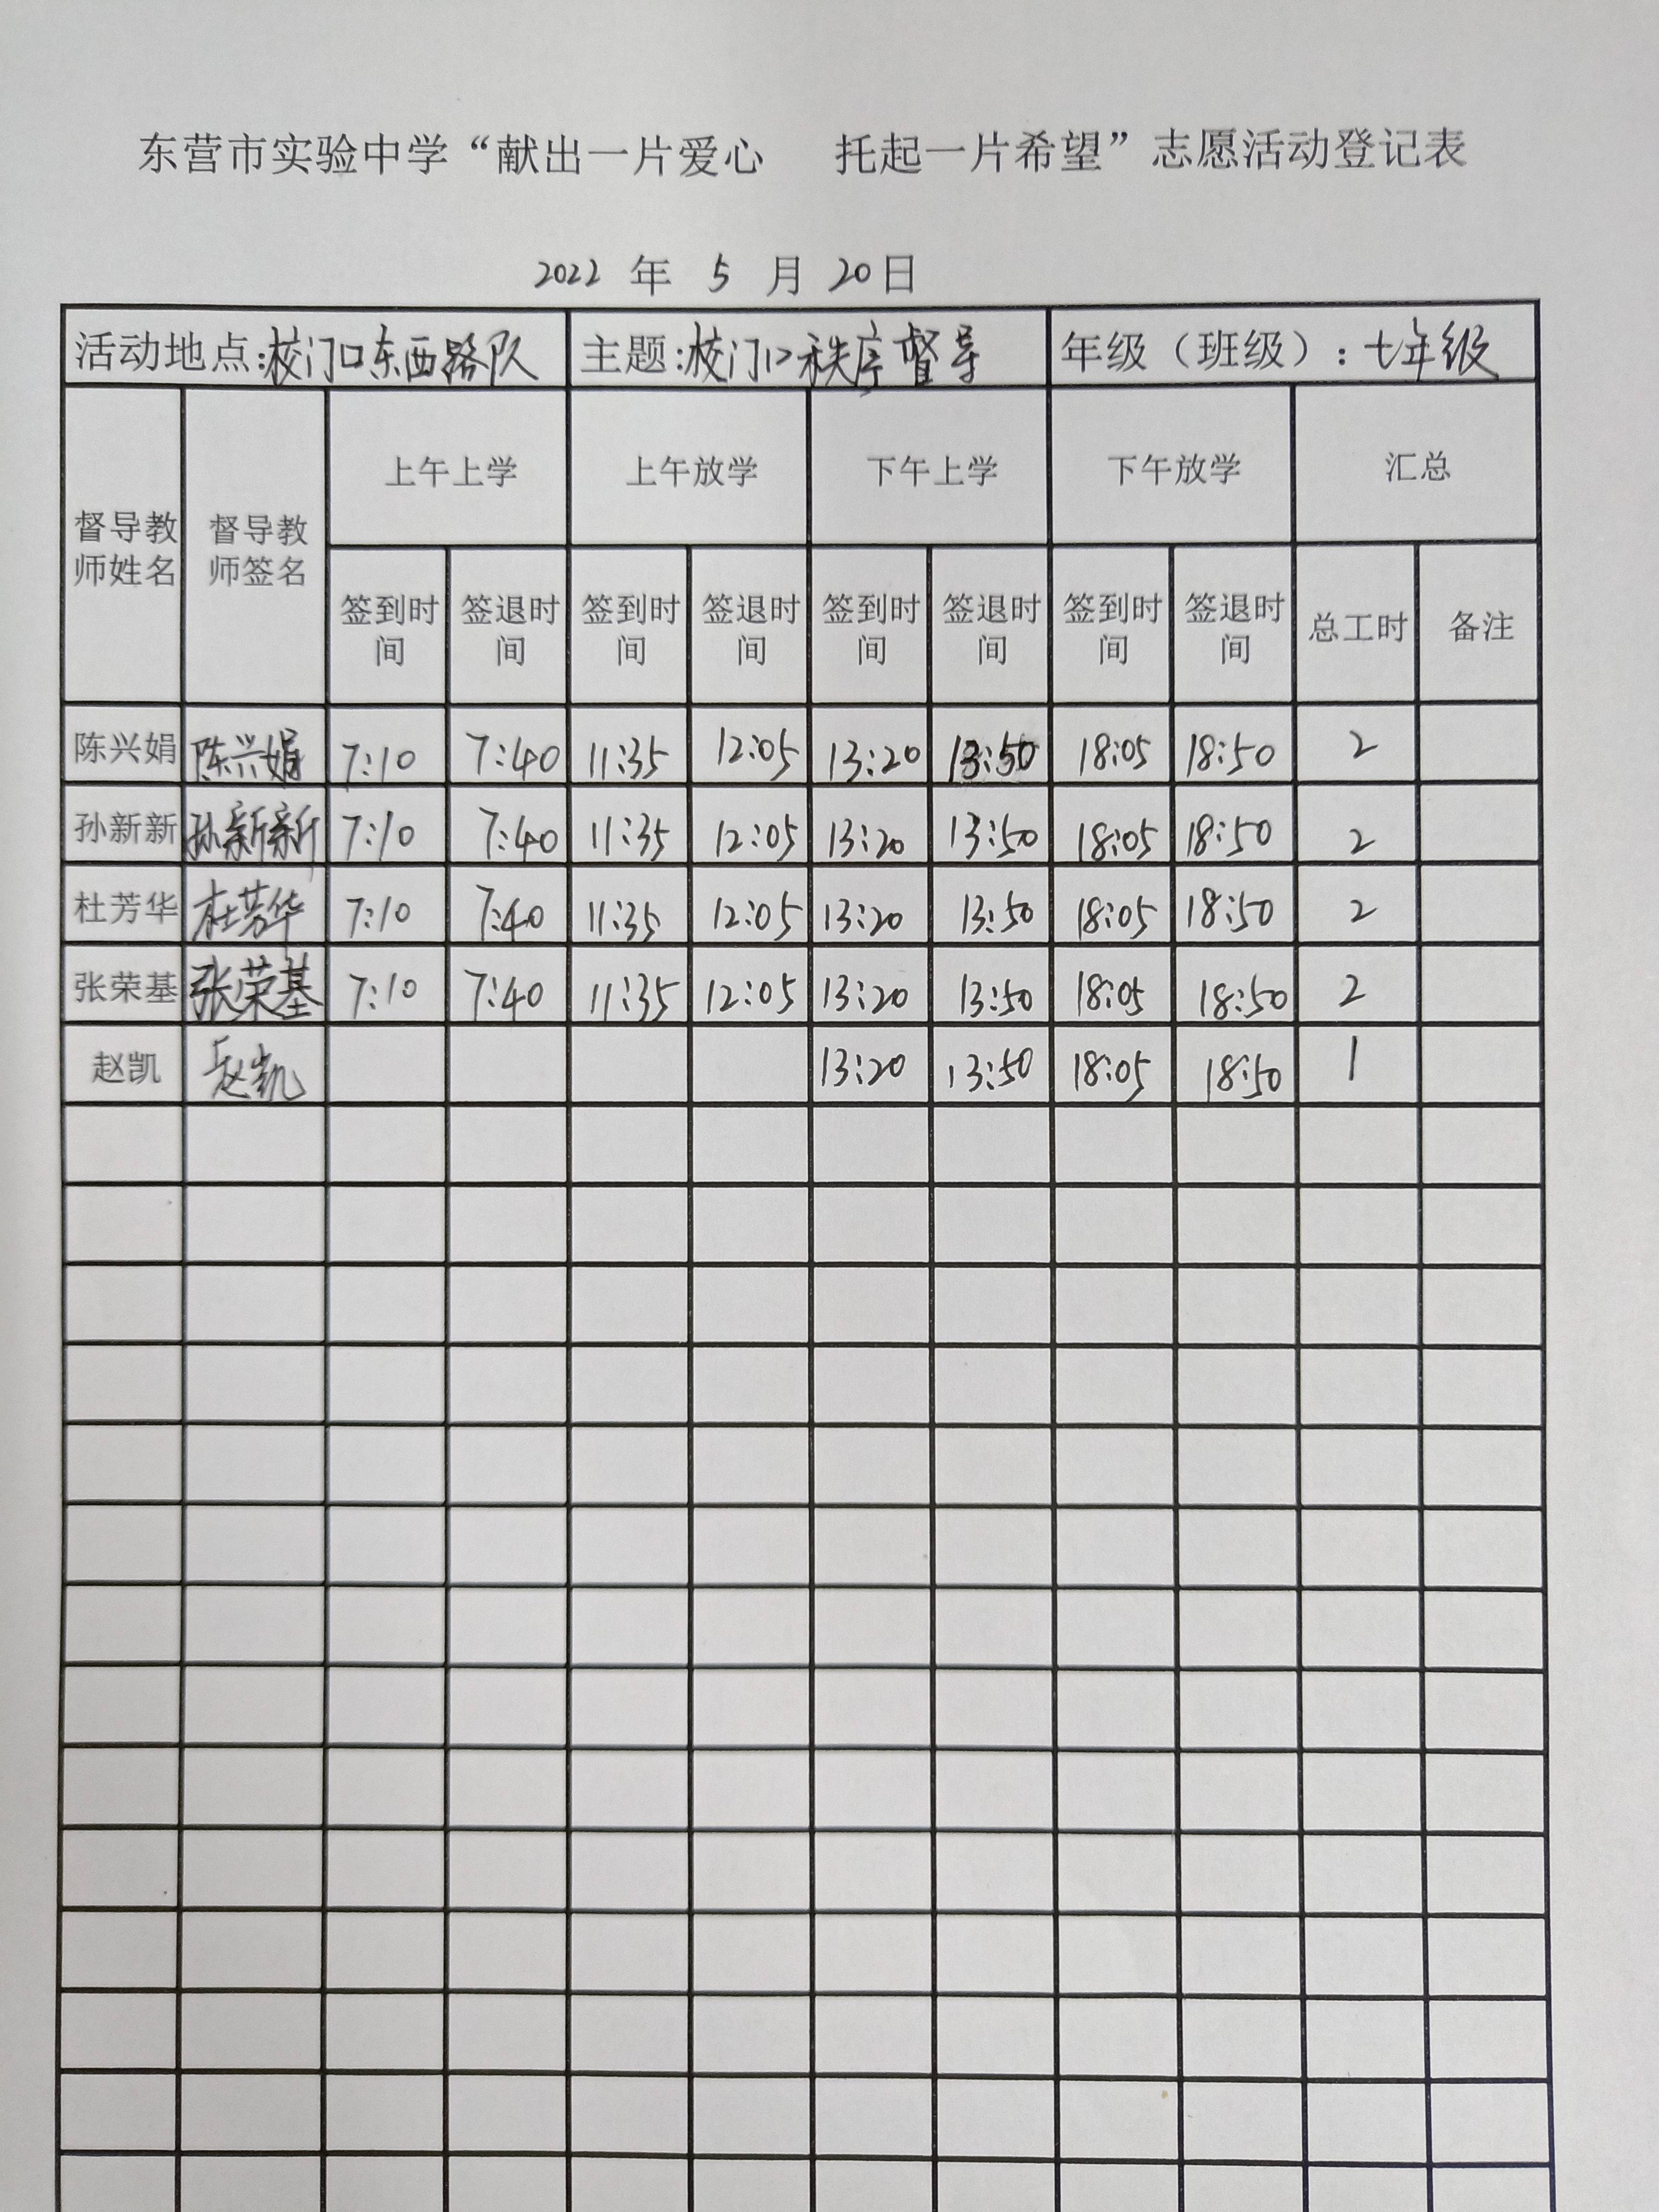 东营市实验中学“献出一片爱心 托起一片希望”志愿活动登记表
2022 年 5 月 20日
活动地点:校门口东西路队 主题:校门口秩序督导 年级（班级）：七年级
督导教师姓名 督导教师签名 上午上学 上午放学 下午上学 下午放学 汇总
签到时间 签退时间 签到时间 签退时间 签到时间 签退时间 签到时间 签退时间 总工时 备注
陈兴娟 陈兴娟 7:10 7:40 11:35 12:05 13:20 13:50 18:05 18:50 2
孙新新 孙新新 7:10 7:40 11:35 12:05 13:20 13:50 18:05 18:50 2
杜芳华 杜芳华 7:10 7:40 11:35 12:05 13:20 13:50 18:05 18:50 2
张荣基 张荣基 7:10 7:40 11:35 12:05 13:20 13:50 18:05 18:50 2
赵凯 赵凯 13:20 13:50 18:05 18:50 1